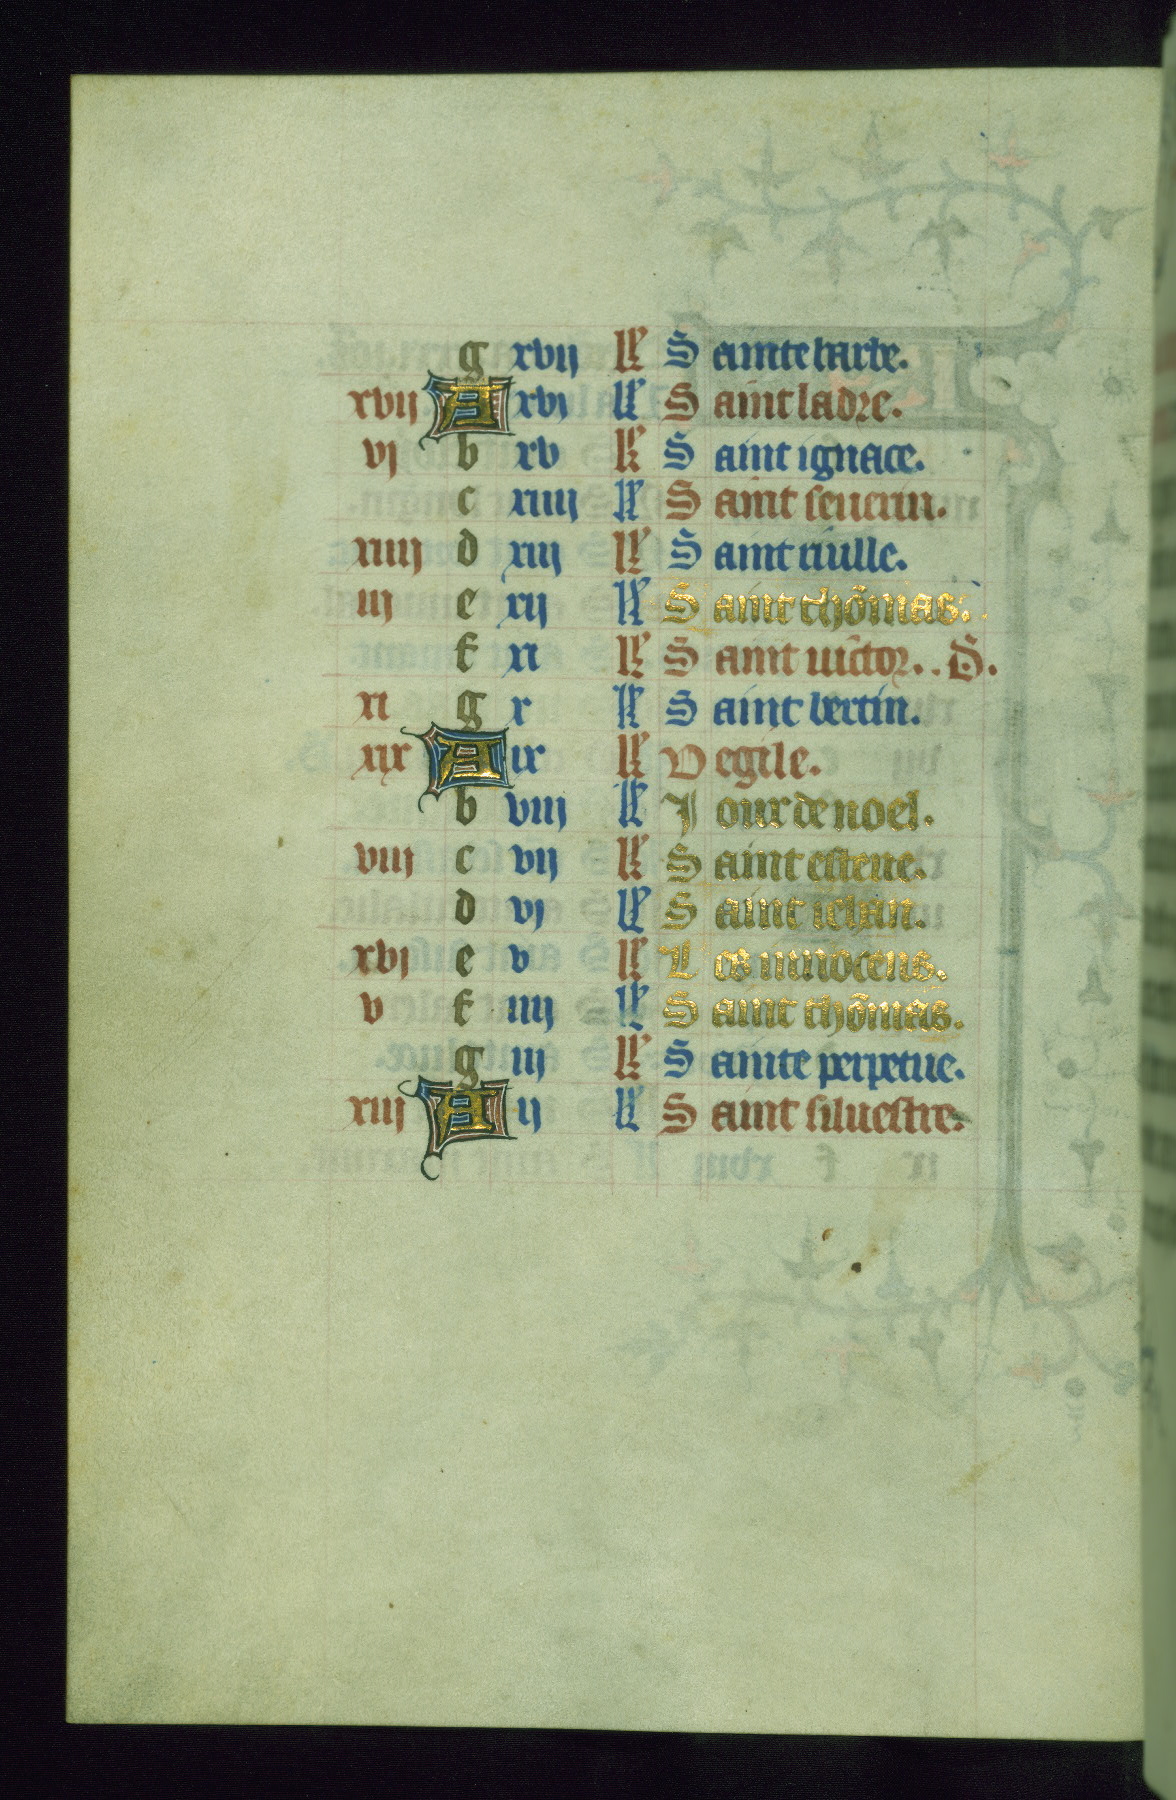 g xvij kl Sainte barbe.
xvij A xvj kl Saint ladre.
vj b xv kl Saint ignace.
c xiiij kl Saint seuerin.
xiiij d xiij kl Saint riulle.
iij e xij kl Saint thõmas.
f xi kl Saint uictor. . D.
xi g x kl Saint bertin.
xix A ix kl Vegile.
b viij kl Jour de noel.
viij c vij kl Saint esteue.
d vj kl Saint iehan.
xvj e v kl Les innocens.
v f iiij kl Saint thõmas.
g iij kl Sainte perpetue.
xiij A ij kl Saint siluestre.